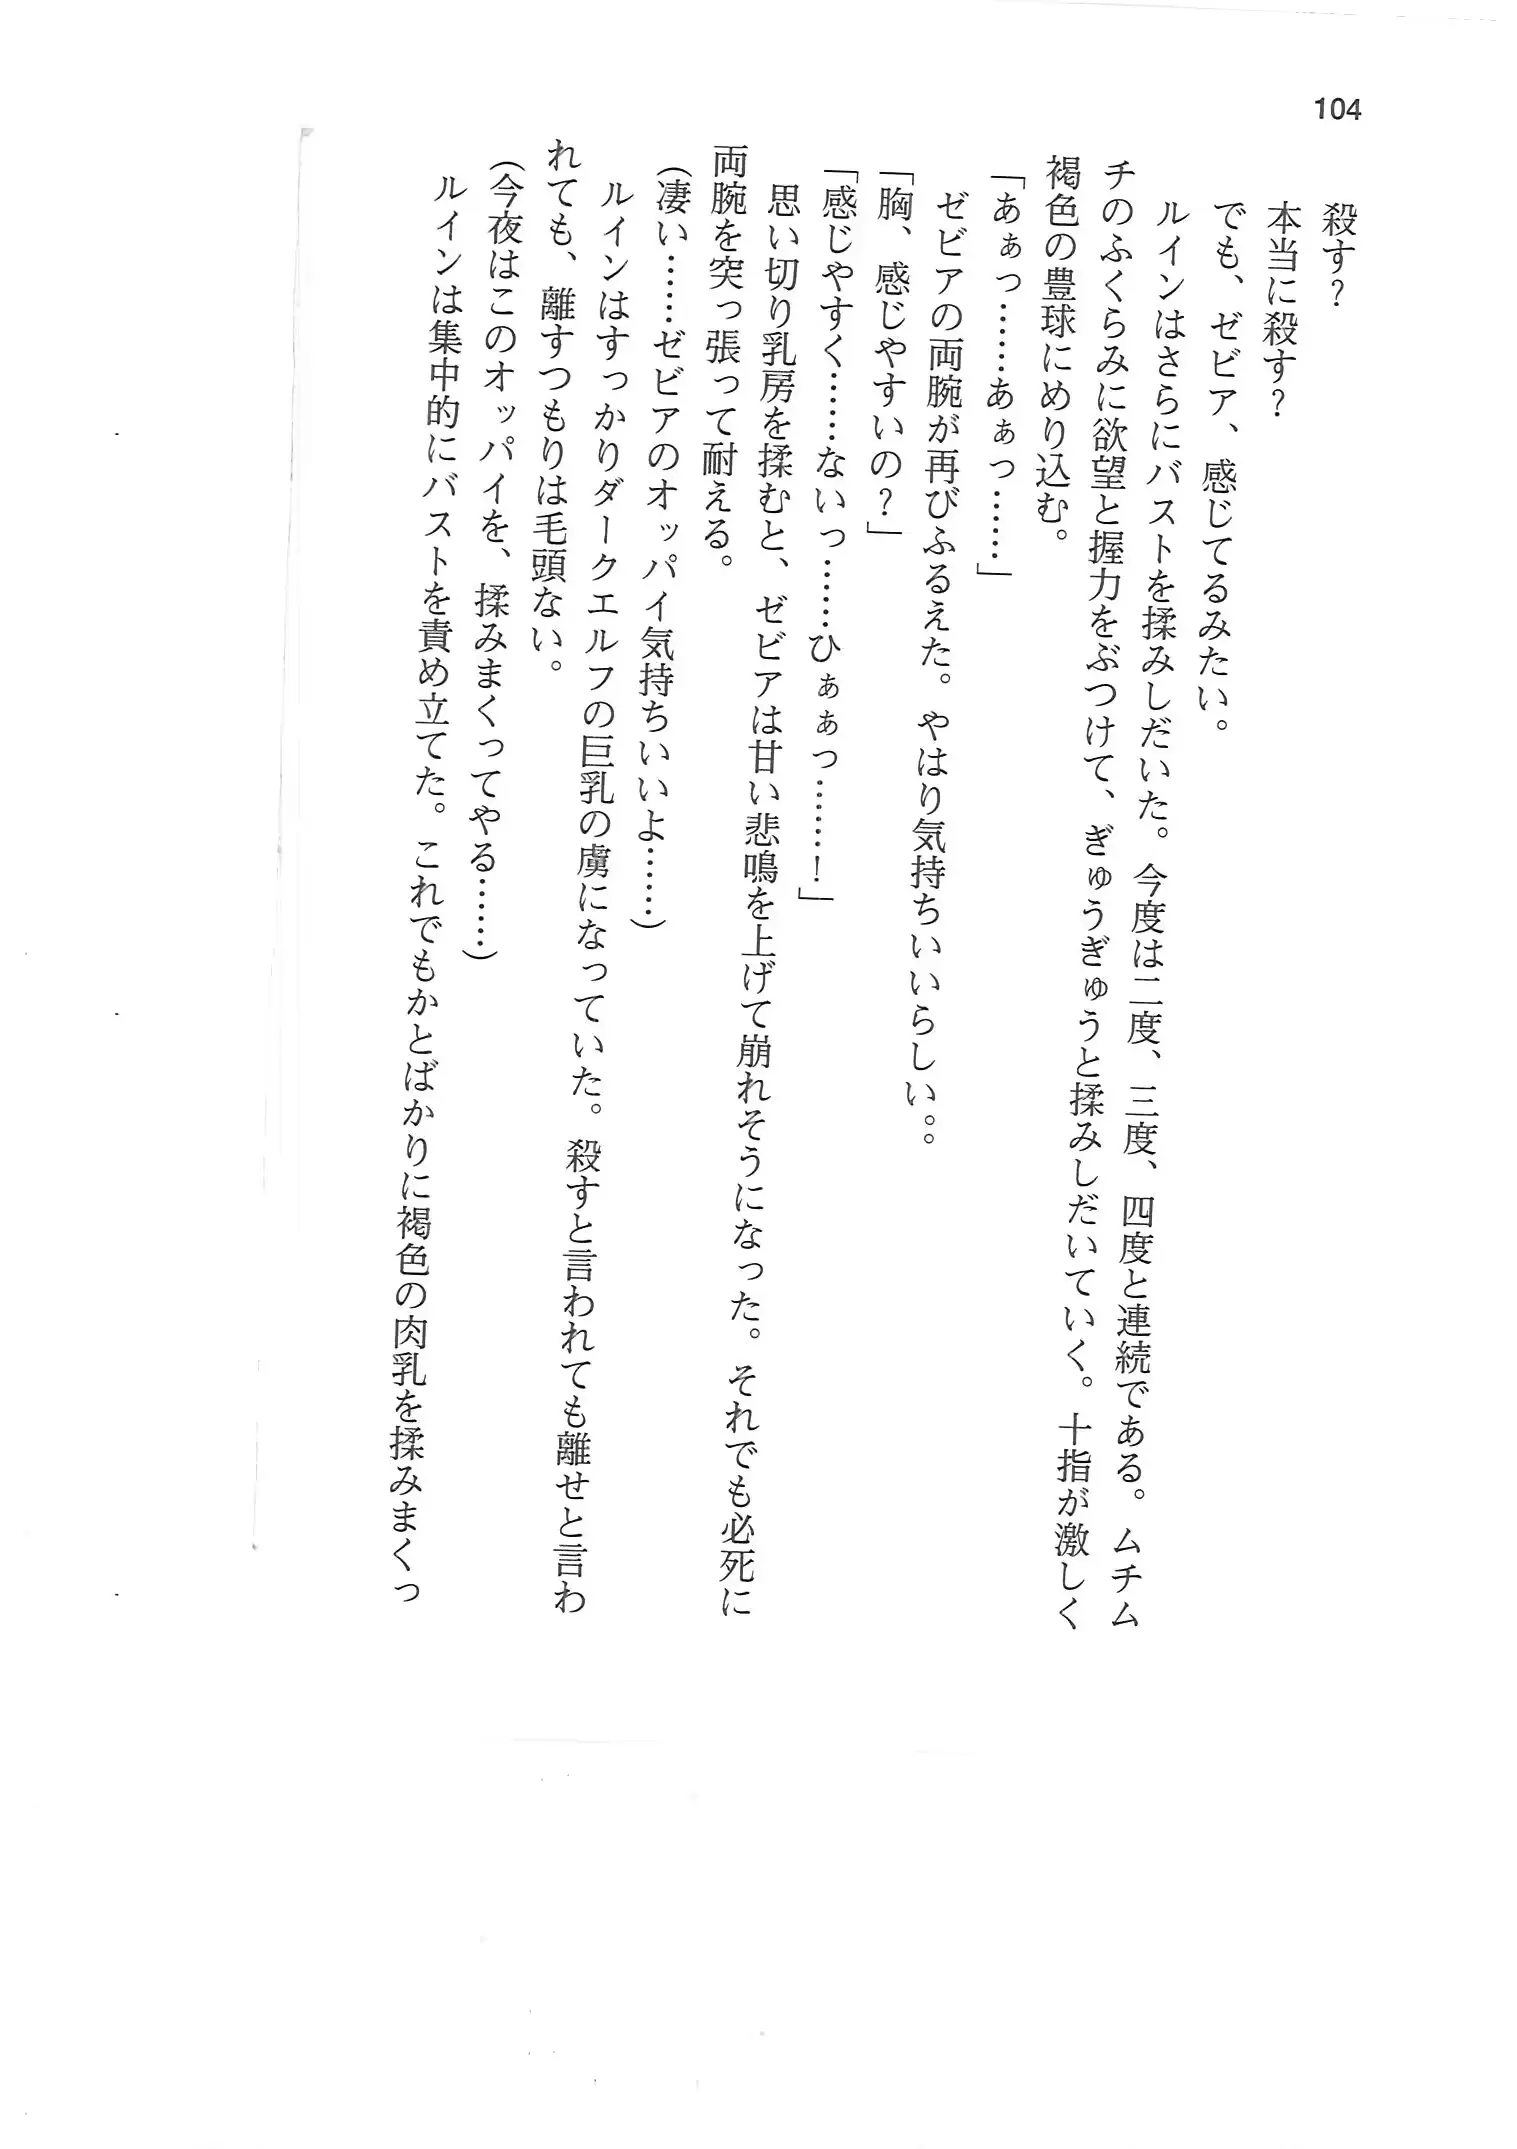 104
殺す?
本当に殺す?
でも、ゼビア、感じてるみたい。
ルインはさらにバストを揉みしだいた。今度は二度、三度、四度と連続である。ムチム
チのふくらみに欲望と握力をぶつけて、ぎゅうぎゅうと揉みしだいていく。十指が激しく
褐色の豊球にめり込む。
「あぁっ……あぁっ……」
ゼビアの両腕が再びふるえた。やはり気持ちいいらしい。。
「胸、感じやすいの?」
「感じやすく……ないっ……ひぁぁっ……!」
思い切り乳房を揉むと、ゼビアは甘い悲鳴を上げて崩れそうになった。それでも必死に
両腕を突っ張って耐える。
(凄い……ゼビアのオッパイ気持ちいいよ……)
ルインはすっかりダークエルフの巨乳の虜になっていた。殺すと言われても離せと言わ
れても、離すつもりは毛頭ない。
(今夜はこのオッパイを、揉みまくってやる……)
ルインは集中的にバストを責め立てた。これでもかとばかりに褐色の肉乳を揉みまくっ